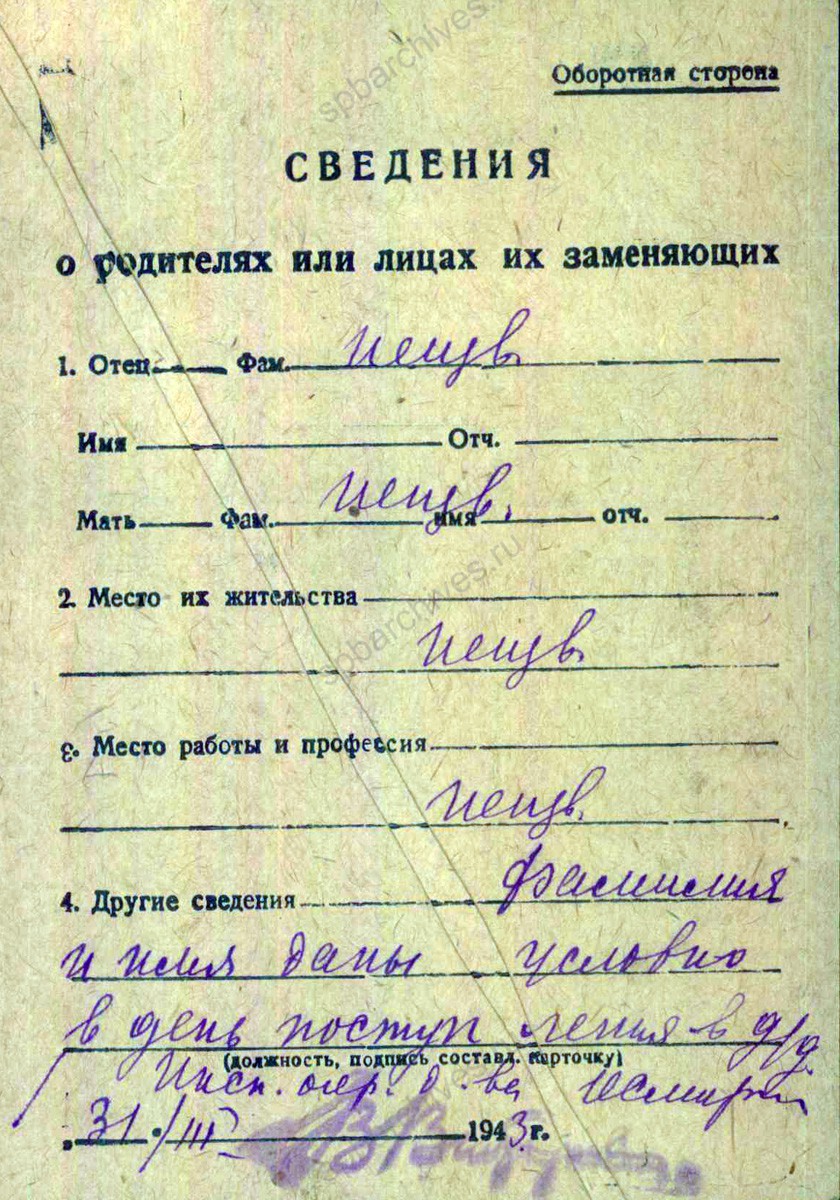 Оборотная сторона
СВЕДЕНИЯ
о родителях или лицах их заменяющих
1. Отец Фам. неизв.
Имя Отч.
Мать Фам. неизв. имя отч.
2. Место их жительства
неизв.
3. Место работы и профессия
неизв.
4. Другие сведения фамилия
и имя даны условно
в день поступления в д/д.
(должность, подпись составл. карточку)
Инсп.
„31“/III 1943 г.
spbarchives.ru